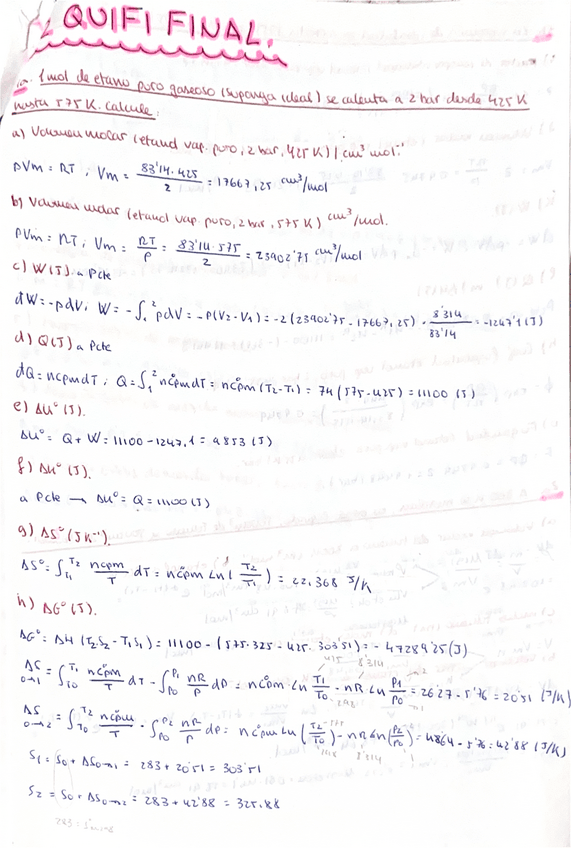 QUIFI FINAL.
1 mol de etano puro gaseoso (suponga ideal) se calienta a 2 bar desde 425 K
hasta 575 K. calcule:
a) Volumen molar (etano vap. puro, 2 bar, 425 K) / cm³ mol⁻¹
pVm = RT ; Vm = 83'14 · 425 / 2 = 17667,25 cm³/mol
b) Volumen molar (etano vap. puro, 2 bar, 575 K) cm³/mol.
PVm = RT ; Vm = RT/P = 83'14 · 575 / 2 = 23902'75 cm³/mol
c) W (J) a Pcte
dW = -pdV ; W = -∫₁² pdV = -P(V₂ - V₁) = -2 (23902'75 - 17667,25) · 8'314 / 83'14 = -1247'1 (J)
d) Q (J) a Pcte
dQ = ncpmdT ; Q = ∫₁² nc°pmdT = nc°pm (T₂ - T₁) = 74 (575 - 425) = 11100 (J)
e) ΔU° (J).
ΔU° = Q + W = 11100 - 1247,1 = 9853 (J)
f) ΔH° (J).
a Pcte → ΔH° = Q = 11100 (J)
g) ΔS° (J K⁻¹).
ΔS° = ∫T₁T₂ ncpm/T dT = nc°pm Ln (T₂/T₁) = 22,368 J/K
h) ΔG° (J).
ΔG° = ΔH (T₂S₂ - T₁S₁) = 11100 - (575 · 325 - 425 · 303'51) = - 47289'25 (J)
ΔS 0→1 = ∫T₀T₁ nc°pm/T dT - ∫P₀P₁ nR/P dP = nc°pm Ln T₁/T₀ - nR Ln P₁/P₀ = 26'27 - 5'76 = 20'51 (J/K)
ΔS 0→2 = ∫T₀T₂ nc°pm/T - ∫P₀P₂ nR/P dP = nc°pm Ln (T₂/T₀) - nR Ln (P₂/P₀) = 48'64 - 5'76 = 42'88 (J/K)
S₁ = S₀ + ΔS₀→₁ = 283 + 20'51 = 303'51
S₂ = S₀ + ΔS₀→₂ = 283 + 42'88 = 325.88